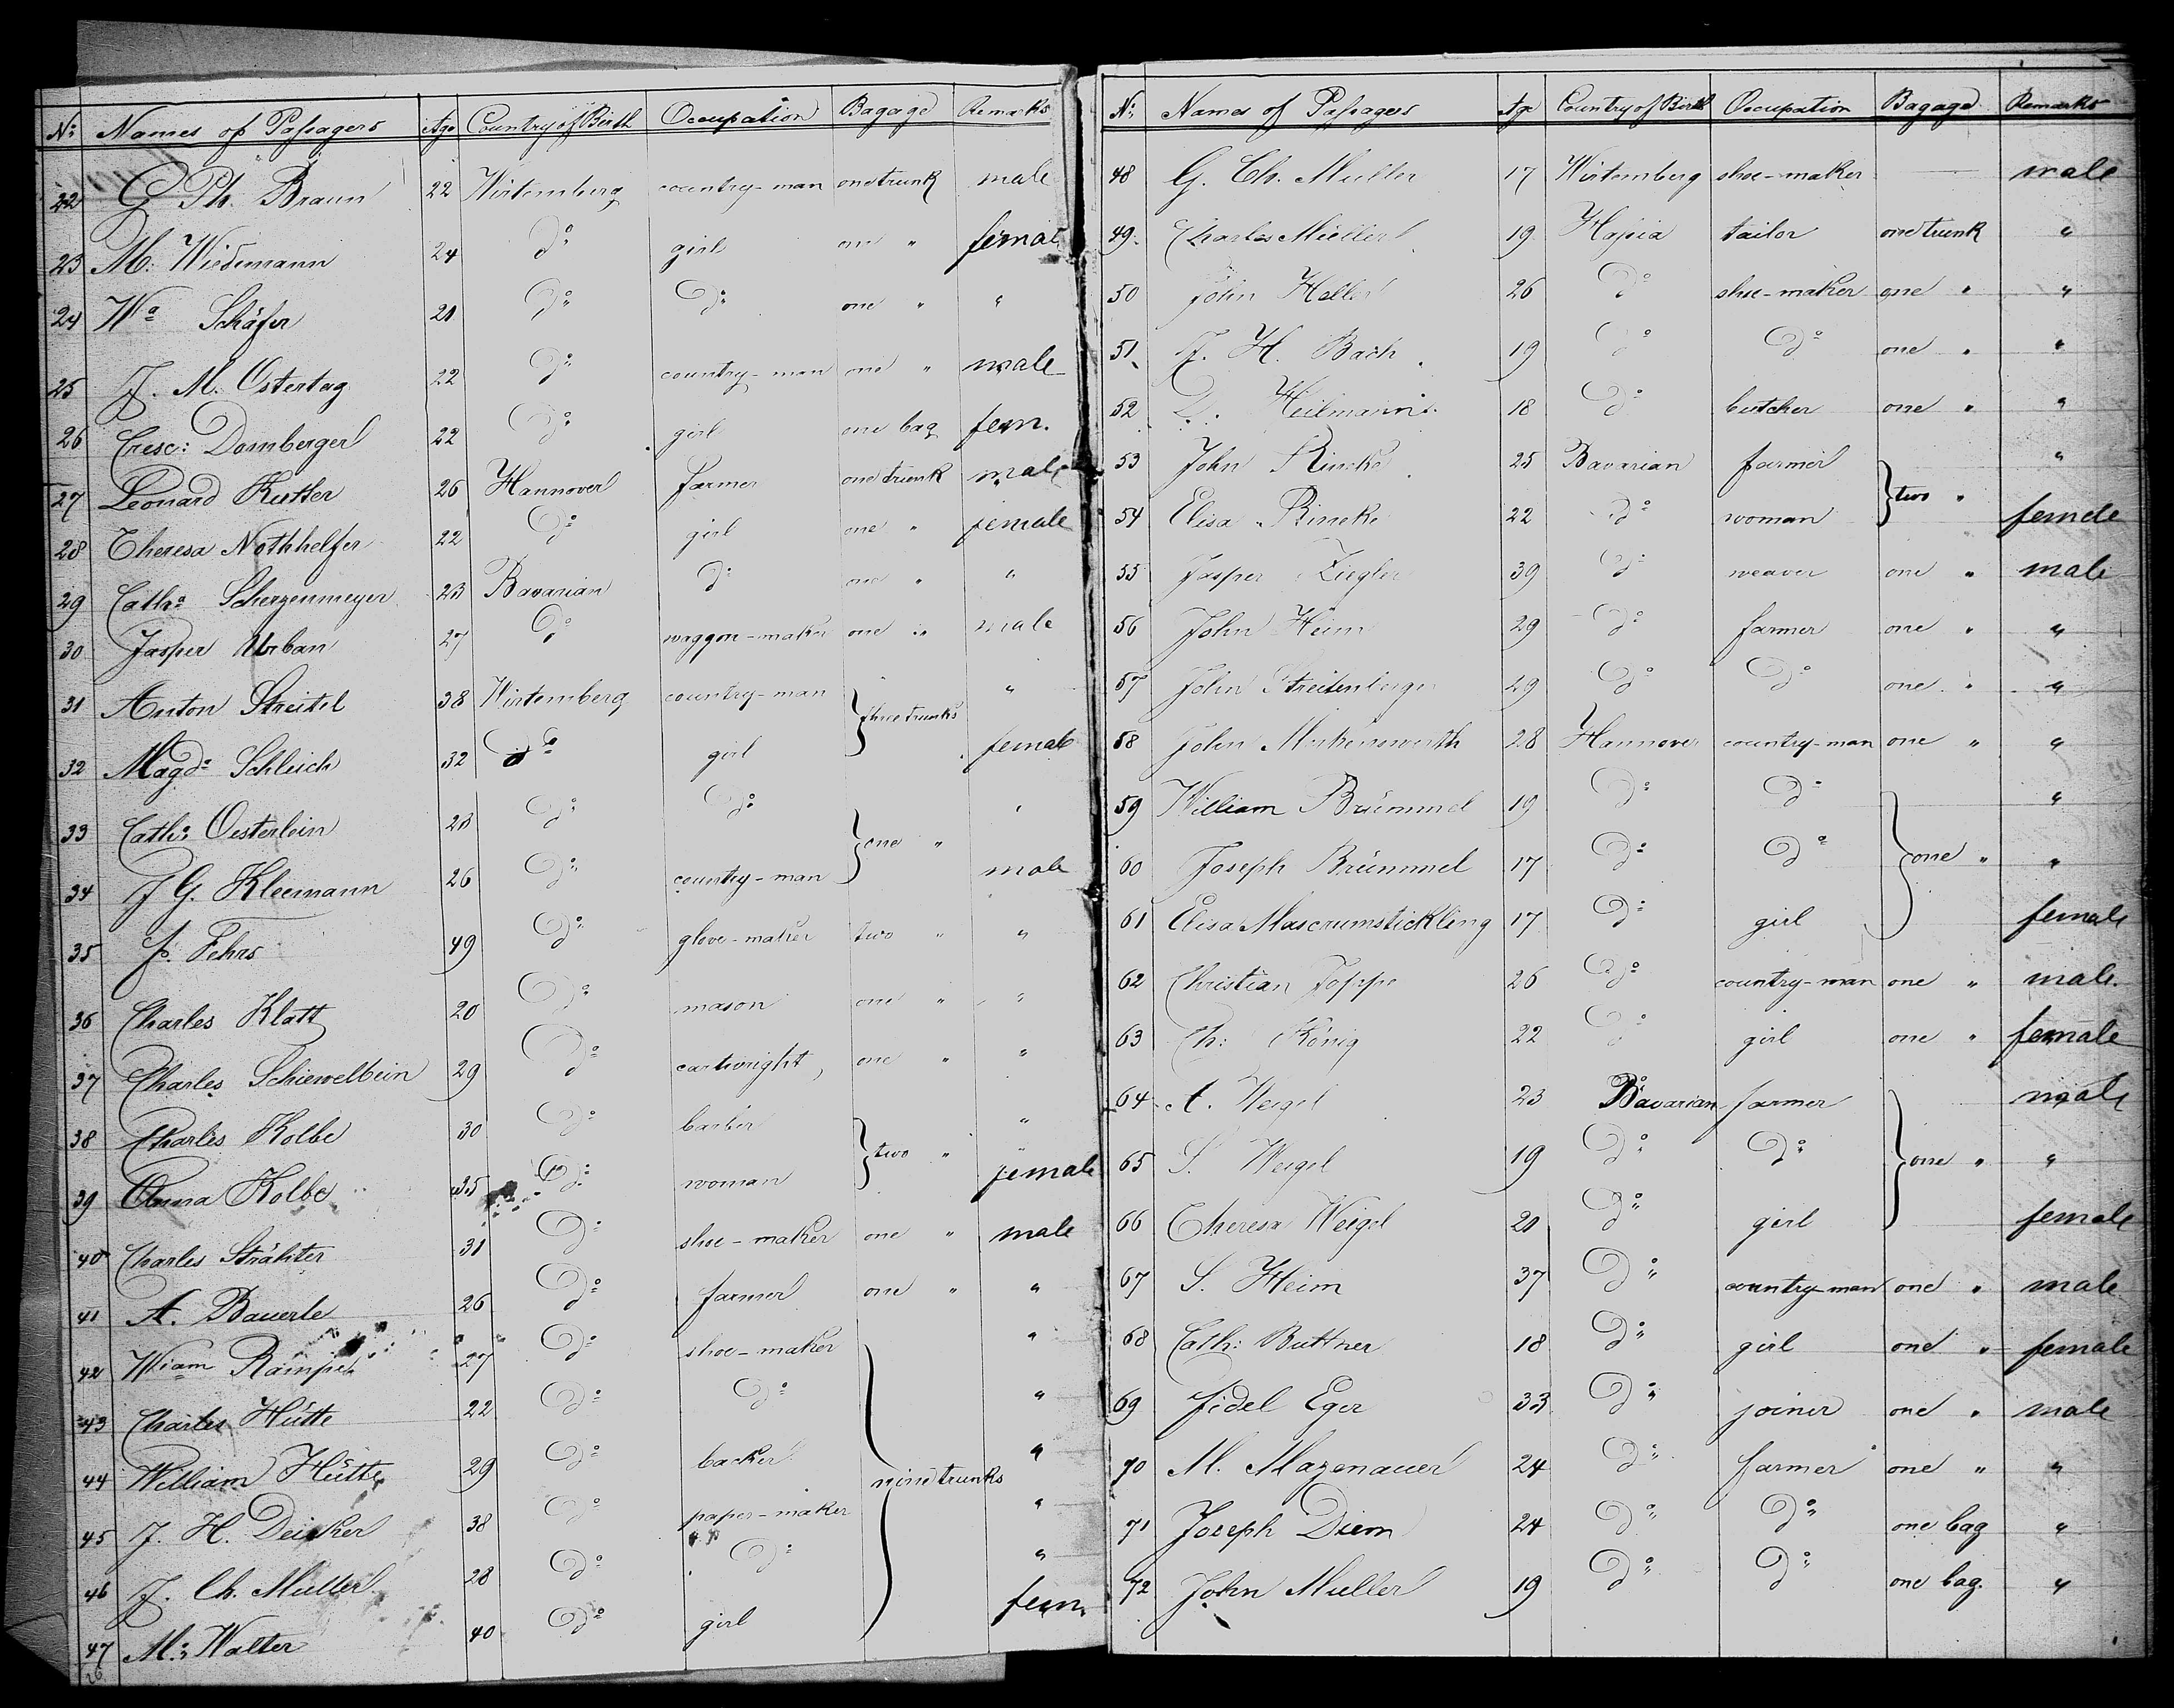 No: Names of Passagers Age Country of Birth Occupation Bagage Remarks
22 G Ph. Braun 22 Wirtemberg country-man one trunk male
23 M: Wiedemann 24 Do girl one " female
24 Wa Schäfer 21 Do Do one " "
25 J. M. Ostertag 22 Do country-man one " male
26 Cresc: Dornberger 22 Do girl one bag fem.
27 Leonard Kutter 26 Hannover farmer one trunk male
28 Theresa Nothhelfer 22 Do girl one " female
29 Catha Scherzenmeyer 23 Bavarian Do one " "
30 Jasper Urban 27 Do waggon-maker one " male
31 Anton Streitel 38 Wirtemberg country-man "
three trunks
32 Magda Schleich 32 Do girl female
33 Cath: Oesterlein 21 Do Do "
one "
34 J G. Kleemann 26 Do country-man male
35 J. Fehrs 49 Do glove-maker two " "
36 Charles Klatt 20 Do mason one " "
37 Charles Schiewelbein 29 Do cartwright, one " "
38 Charles Kolbe 30 Do barber "
two "
39 Anna Kolbe 35 Do woman female
40 Charles Strähter 31 Do shoe-maker one " male
41 A. Bauerle 26 Do farmer one " "
42 Wiam Rampel 27 Do shoe-maker "
43 Charles Hütte 22 Do Do "
44 William Hütte 29 Do backer "
nine trunks
45 J. H. Deicker 38 Do paper-maker "
46 J. Ch. Muller 28 Do Do "
47 M: Walter 40 Do girl fem.
No: Names of Passagers Age Country of Birth Occupation Bagage Remarks
48 G. Ch. Muller 17 Wirtemberg shoe-maker — male
49 Charles Müller 19 Hassia tailor one trunk "
50 John Heller 26 Do shoe-maker one " "
51 J. H. Bach 19 Do Do one " "
52 D. Heilmann 18 Do butcher one " "
53 John Rincke 25 Bavarian farmer "
two "
54 Elisa Rincke 22 Do woman female
55 Jasper Ziegler 39 Do weaver one " male
56 John Heim 29 Do farmer one " "
57 John Streitenberger 29 Do Do one " "
58 John 28 Hannover country-man one " "
59 William Brümmel 19 Do Do "
60 Joseph Brümmel 17 Do Do one " "
61 Elisa Mascrumstickling 17 Do girl female
62 Christian Toppe 26 Do country-man one " male.
63 Ch: König 22 Do girl one " female
64 A. Weigel 23 Bavarian farmer male
65 S. Weigel 19 Do Do one " "
66 Theresa Weigel 21 Do girl female
67 S. Heim 37 Do country-man one " male
68 Cath: Buttner 18 Do girl one " female
69 Fidel Eger 33 Do joiner one " male
70 M. Mazenauer 24 Do farmer one " "
71 Joseph Diem 24 Do Do one bag "
72 John Muller 19 Do Do one bag. "